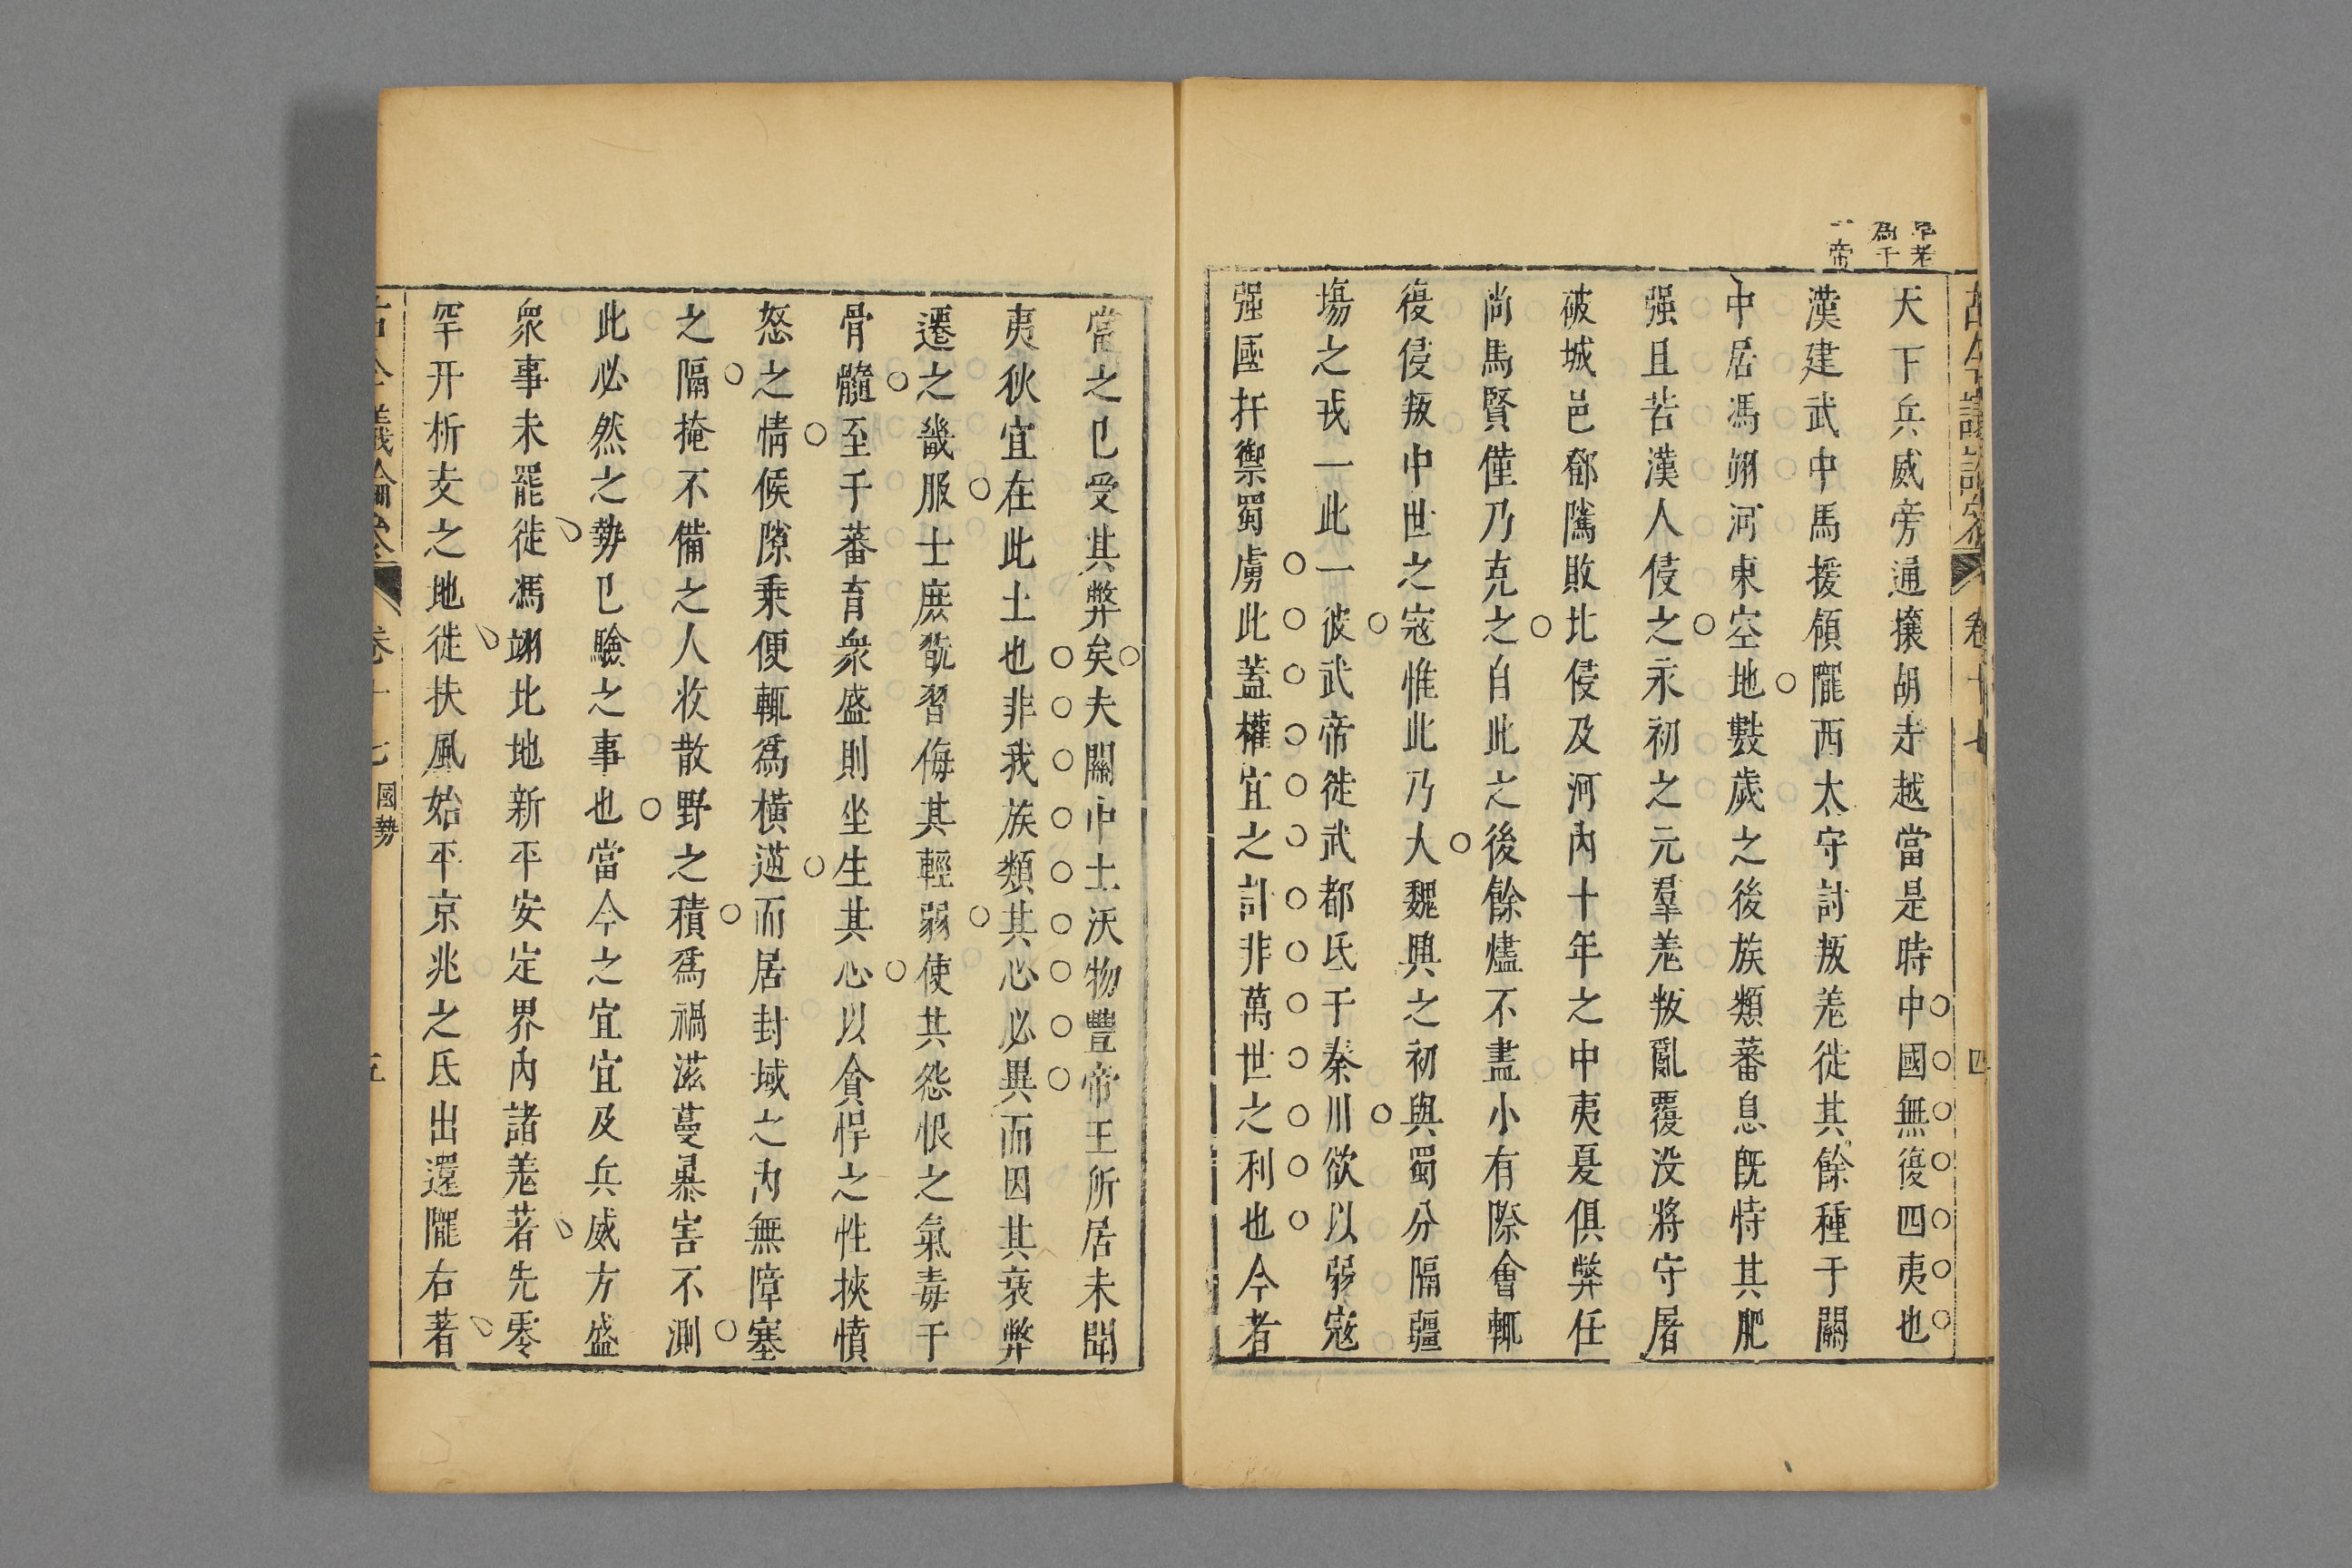 爲千
一帝
天下兵威旁通攘胡走越當是時中國無復四夷也
漢建武中馬援領隴西太守討叛羌徙其餘種于關
中居馮翊河東空地數歲之後族類蕃息旣恃其肥
强且苦漢人侵之永初之元羣羌叛亂覆没將守屠
破城邑鄧隲敗北侵及河內十年之中夷夏俱弊任
尚馬賢僅乃克之自此之後餘燼不盡小有際會輒
復侵叛中世之寇惟此乃大魏興之初與蜀分隔疆
塲之戎一此一彼武帝徙武都氐于秦川欲以弱寇
强國扞禦蜀虜此蓋權宜之計非萬世之利也今者
當之已受其弊矣夫關中土沃物豐帝王所居未聞
夷狄宜在此土也非我族類其心必異而因其衰弊
遷之畿服士庶翫習侮其輕弱使其怨恨之氣毒于
骨髓至于蕃育衆盛則坐生其心以貪悍之性挾憤
怒之情候隙乗便輒爲橫逆而居封域之內無障塞
之隔掩不備之人收散野之積爲禍滋蔓暴害不測
此必然之勢已驗之事也當今之宜宜及兵威方盛
衆事未罷徙馮翊北地新平安定界內諸羌著先零
罕幵析支之地徙扶風始平京兆之氐出還隴右著
古今議論參 卷十七 國勢 五